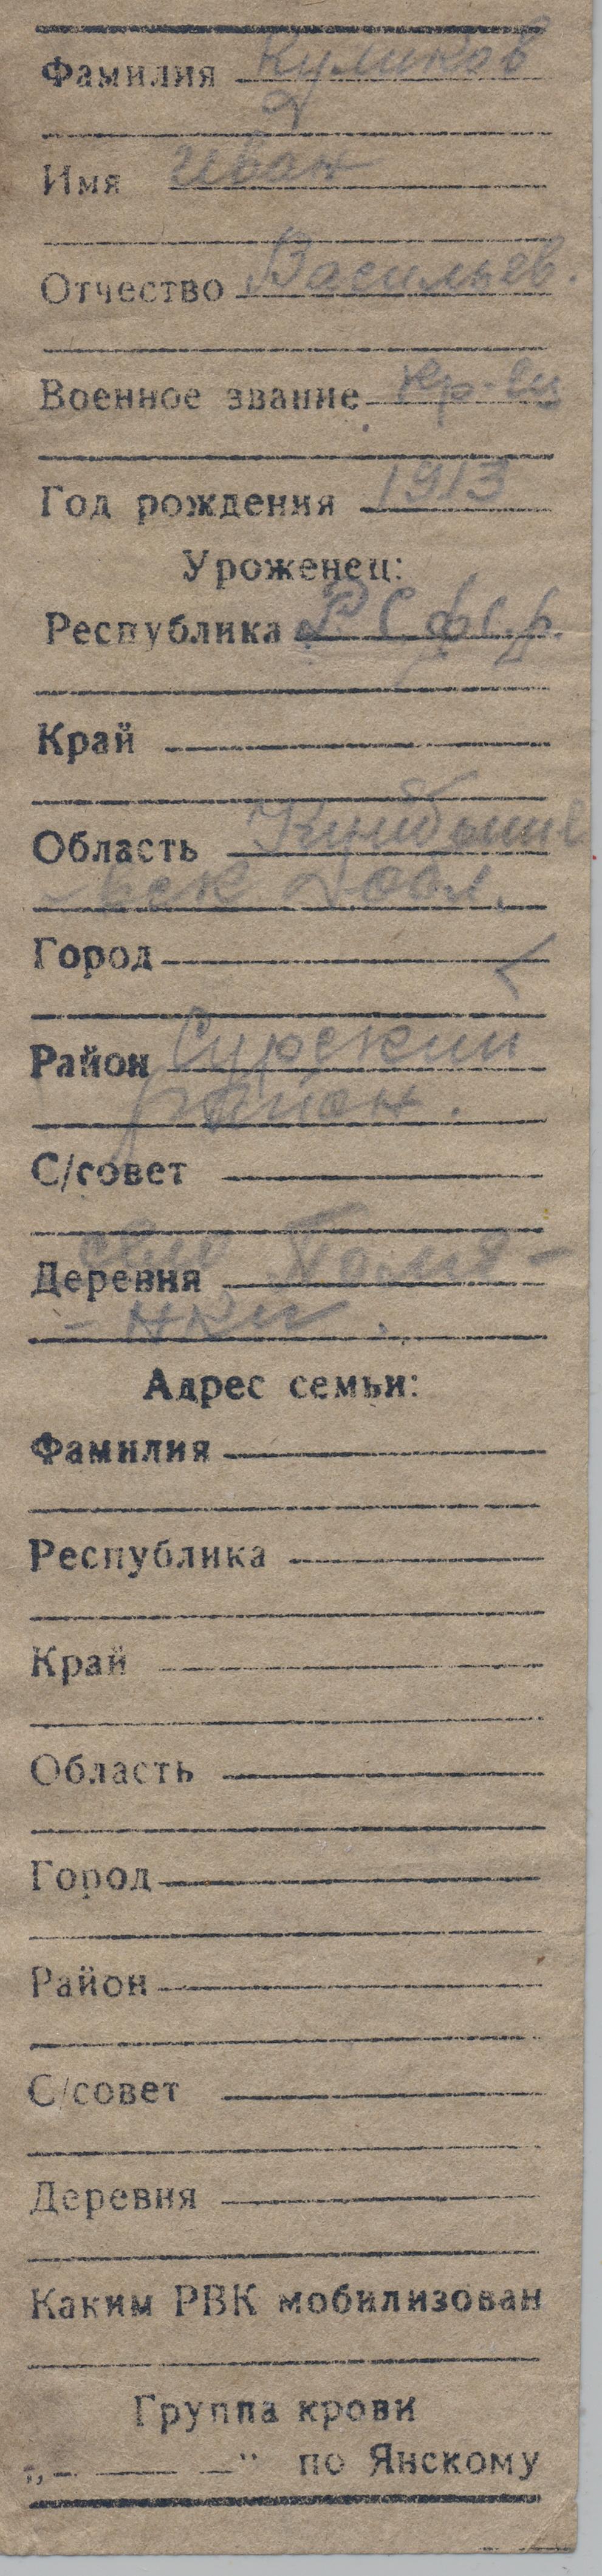 Фамилия Куликов
Имя Иван
Отчество Васильев.
Военное звание Кр-ец
Год рождения 1913
Уроженец:
Республика Р.С.Ф.С.Р.
Край
Область Куйбышев
-ская обл.
Город
Район Сурский
район.
С/совет
Деревня село Полян-
- нки.
Адрес семьи:
Фамилия
Республика
Край
Область
Город
Район
С/совет
Деревня
Каким РВК мобилизован
Группа крови
„- — -" по Янскому